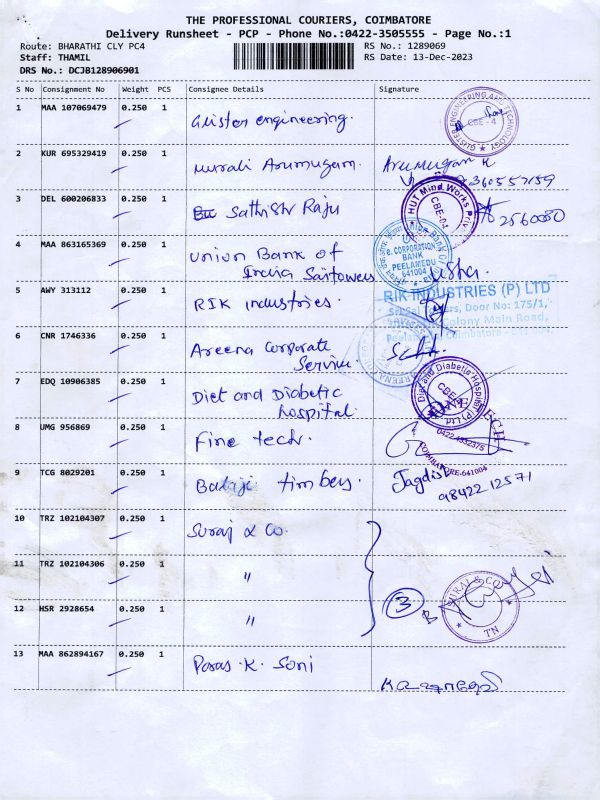 THE PROFESSIONAL COURIERS, COIMBATORE
Delivery Runsheet - PCP - Phone No.:0422-3505555 - Page No.:1
Route: BHARATHI CLY PC4
RS No.: 1289069
Staff: THAMIL
RS Date: 13-Dec-2023
DRS No.: DCJB128906901
S No Consignment No Weight PCS Consignee Details Signature
1 MAA 107069479 0.250 1 Glister engineering.
GLISTER ENGINEERING AND TECHNOLOGY
CBE - 4
2 KUR 695329419 0.250 1 Murali Arumugam. Arumugam K
9360557159
3 DEL 600206833 0.250 1 Sathish Raju
HUT Mind Works Priv
CBE-04
2560080
4 MAA 863165369 0.250 1 Union Bank of
India Saitowers
Union Bank Of
e. CORPORATION
BANK
PEELAMEDU
641004
Usha.
5 AWY 313112 0.250 1 RIK industries.
RIK INDUSTRIES (P) LTD
Door No: 175/1,
Colony Main Road,
Coimbatore
6 CNR 1746336 0.250 1 Areena Corporate
Service.
7 EDQ 10906385 0.250 1 Diet and Diabetic
hospital.
Diet and Diabetic Hospital (P) Ltd
CBE
8 UMG 956869 0.250 1 Fine tech.
FINE TECH
0422-4332375
COIMBATORE-641004
9 TCG 8029201 0.250 1 Balaji timbers. Jagdish
98422 12571
10 TRZ 102104307 0.250 1 Suraj & Co.
11 TRZ 102104306 0.250 1 "
3
SURAJ & CO
TN
12 HSR 2928654 0.250 1 "
13 MAA 862894167 0.250 1 Paras. K. Soni